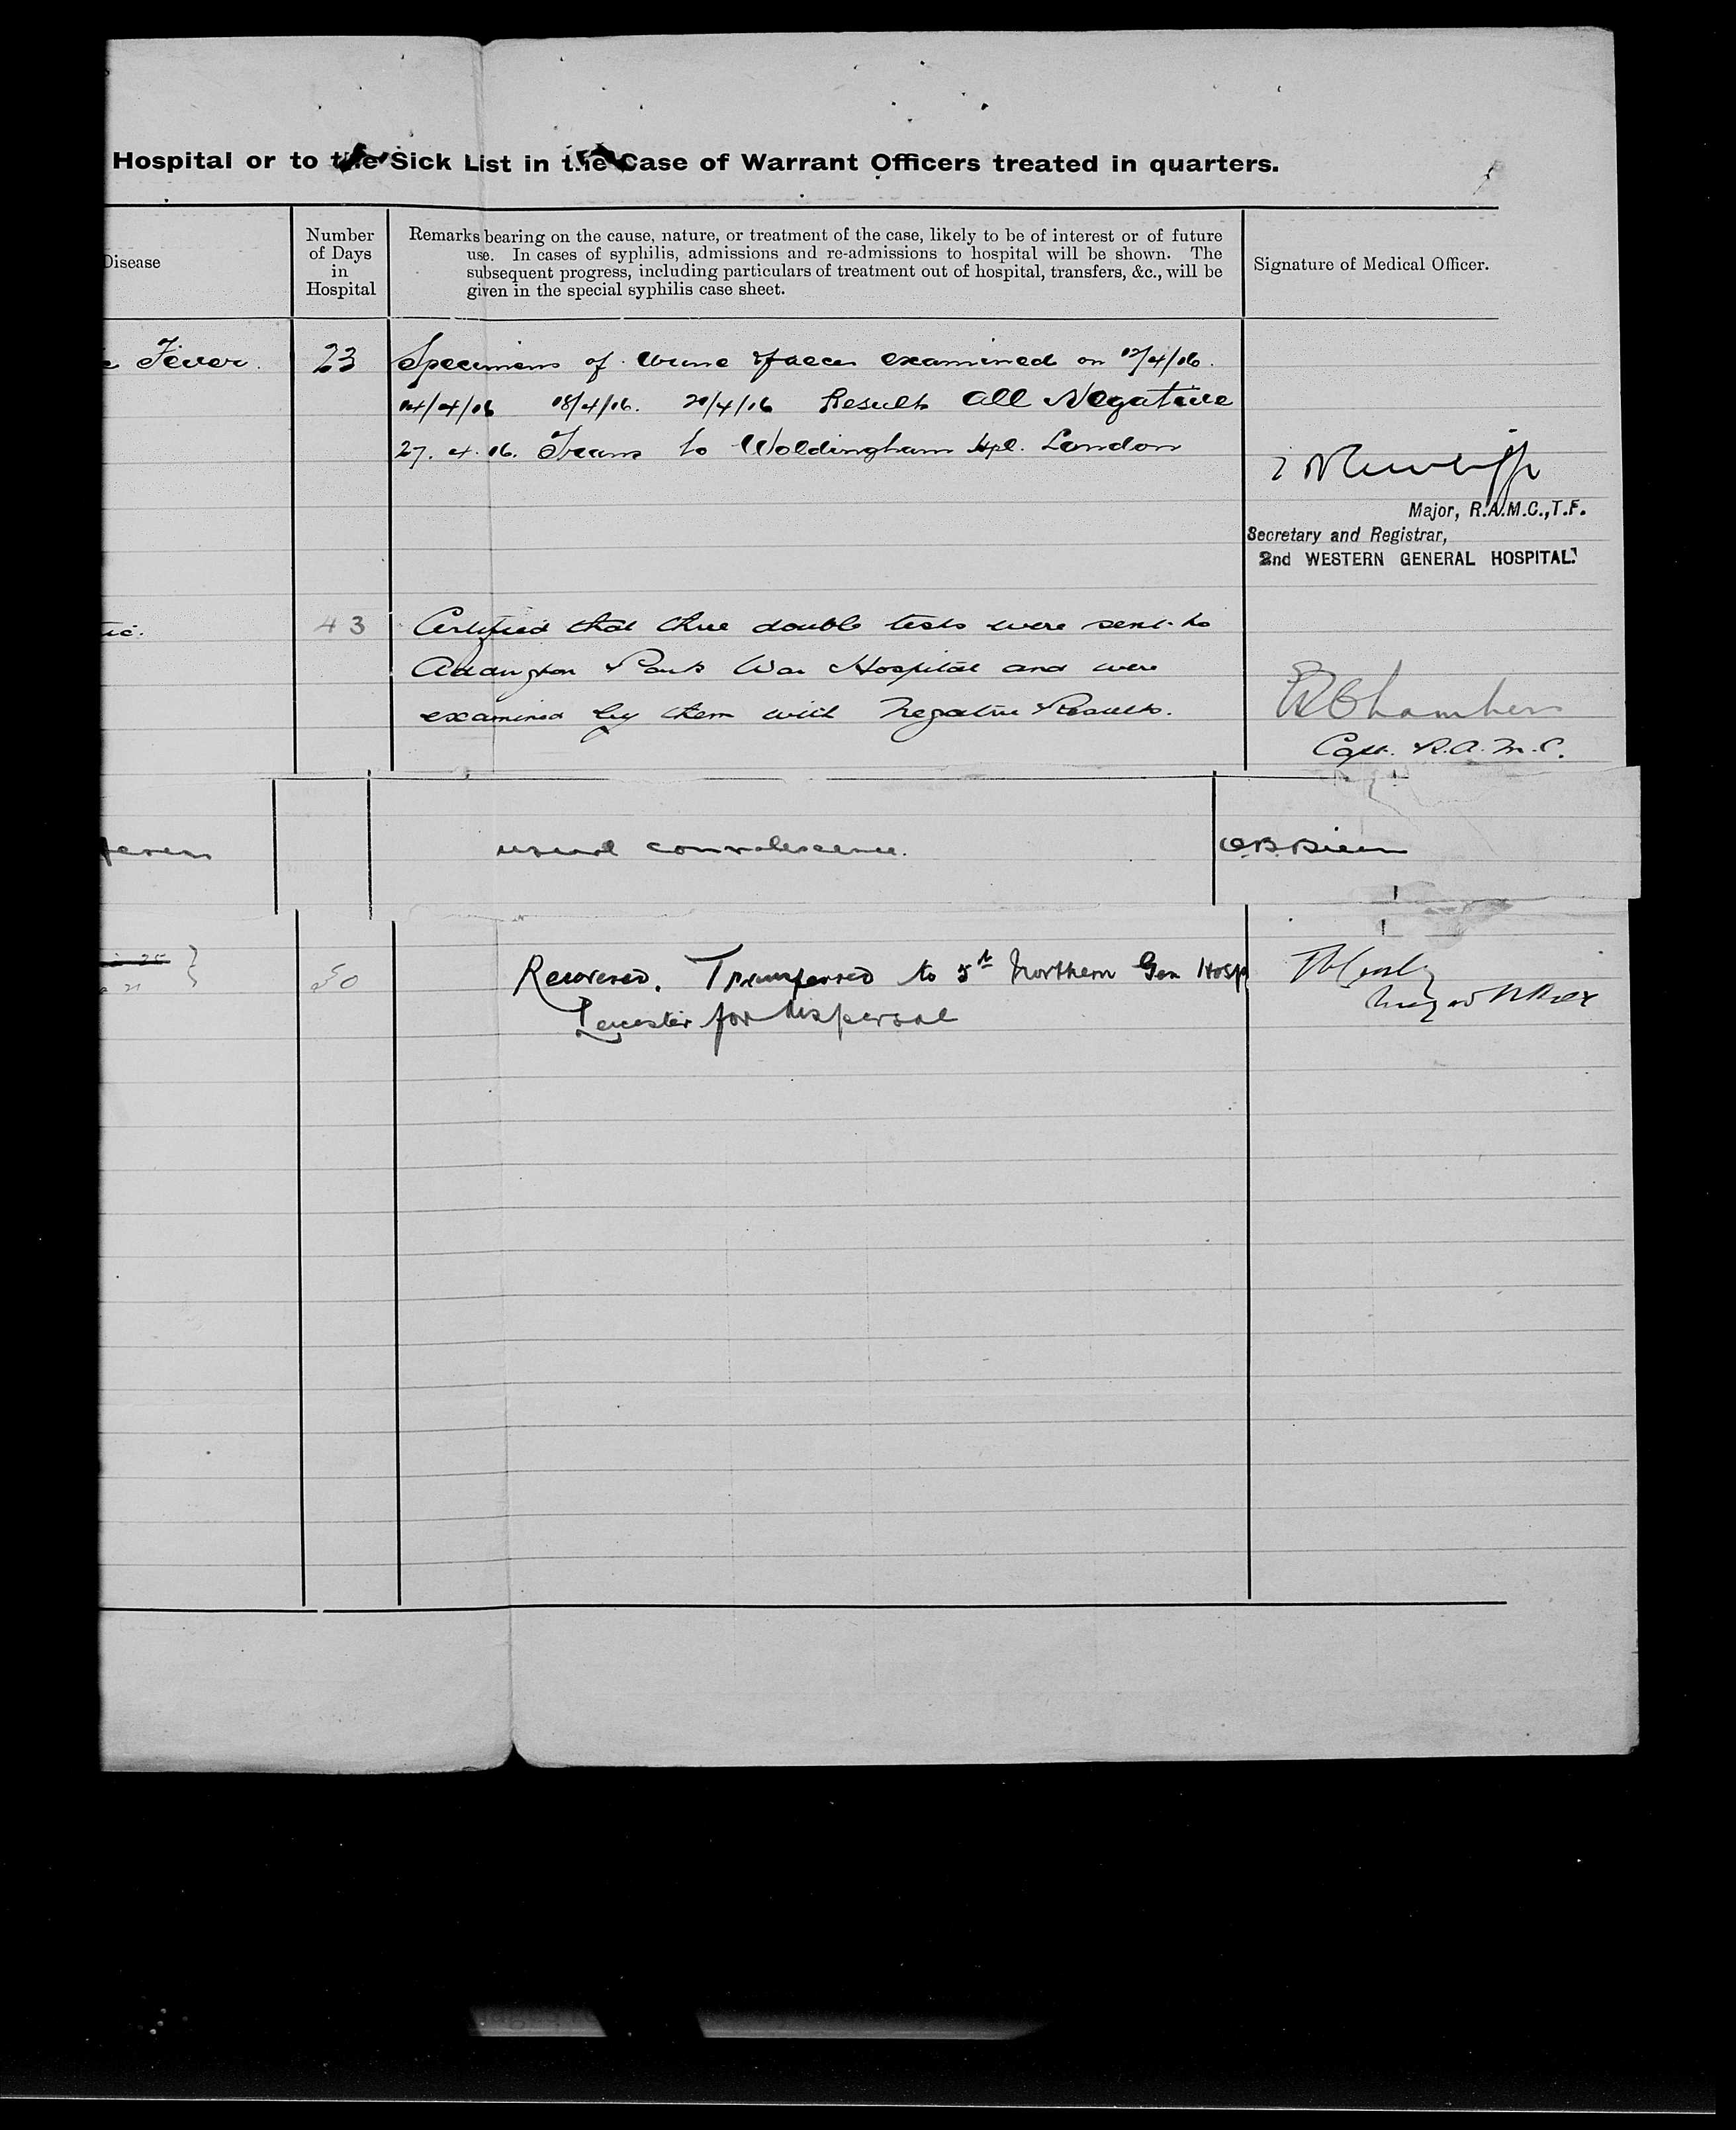 Hospital or to the Sick List in the Case of Warrant Officers treated in quarters.
Disease
Number
of Days
in
Hospital
Remarks bearing on the cause, nature, or treatment of the case, likely to be of interest or of future
use. In cases of syphilis, admissions and re-admissions to hospital will be shown. The
subsequent progress, including particulars of treatment out of hospital, transfers, &c., will be
given in the special syphilis case sheet.
Signature of Medical Officer.
Fever. 23 Specimens of Urine & faeces examined on 12/4/16.
14/4/16 18/4/16. 20/4/16 Results All Negative
27. 4. 16. Trans to Woldingham Hpl. London
Major, R.A.M.C.,T.F.
Secretary and Registrar,
2nd WESTERN GENERAL HOSPITAL.
43 Certified that three double tests were sent to
Addington Park War Hospital and were
examined by them with Negative Results.
Chambers
Capt. R.A.M.C.
usual convalescence.
O'Brien
50 Recovered. Transferred to 5th Northern Gen Hosp
Leicester for dispersal